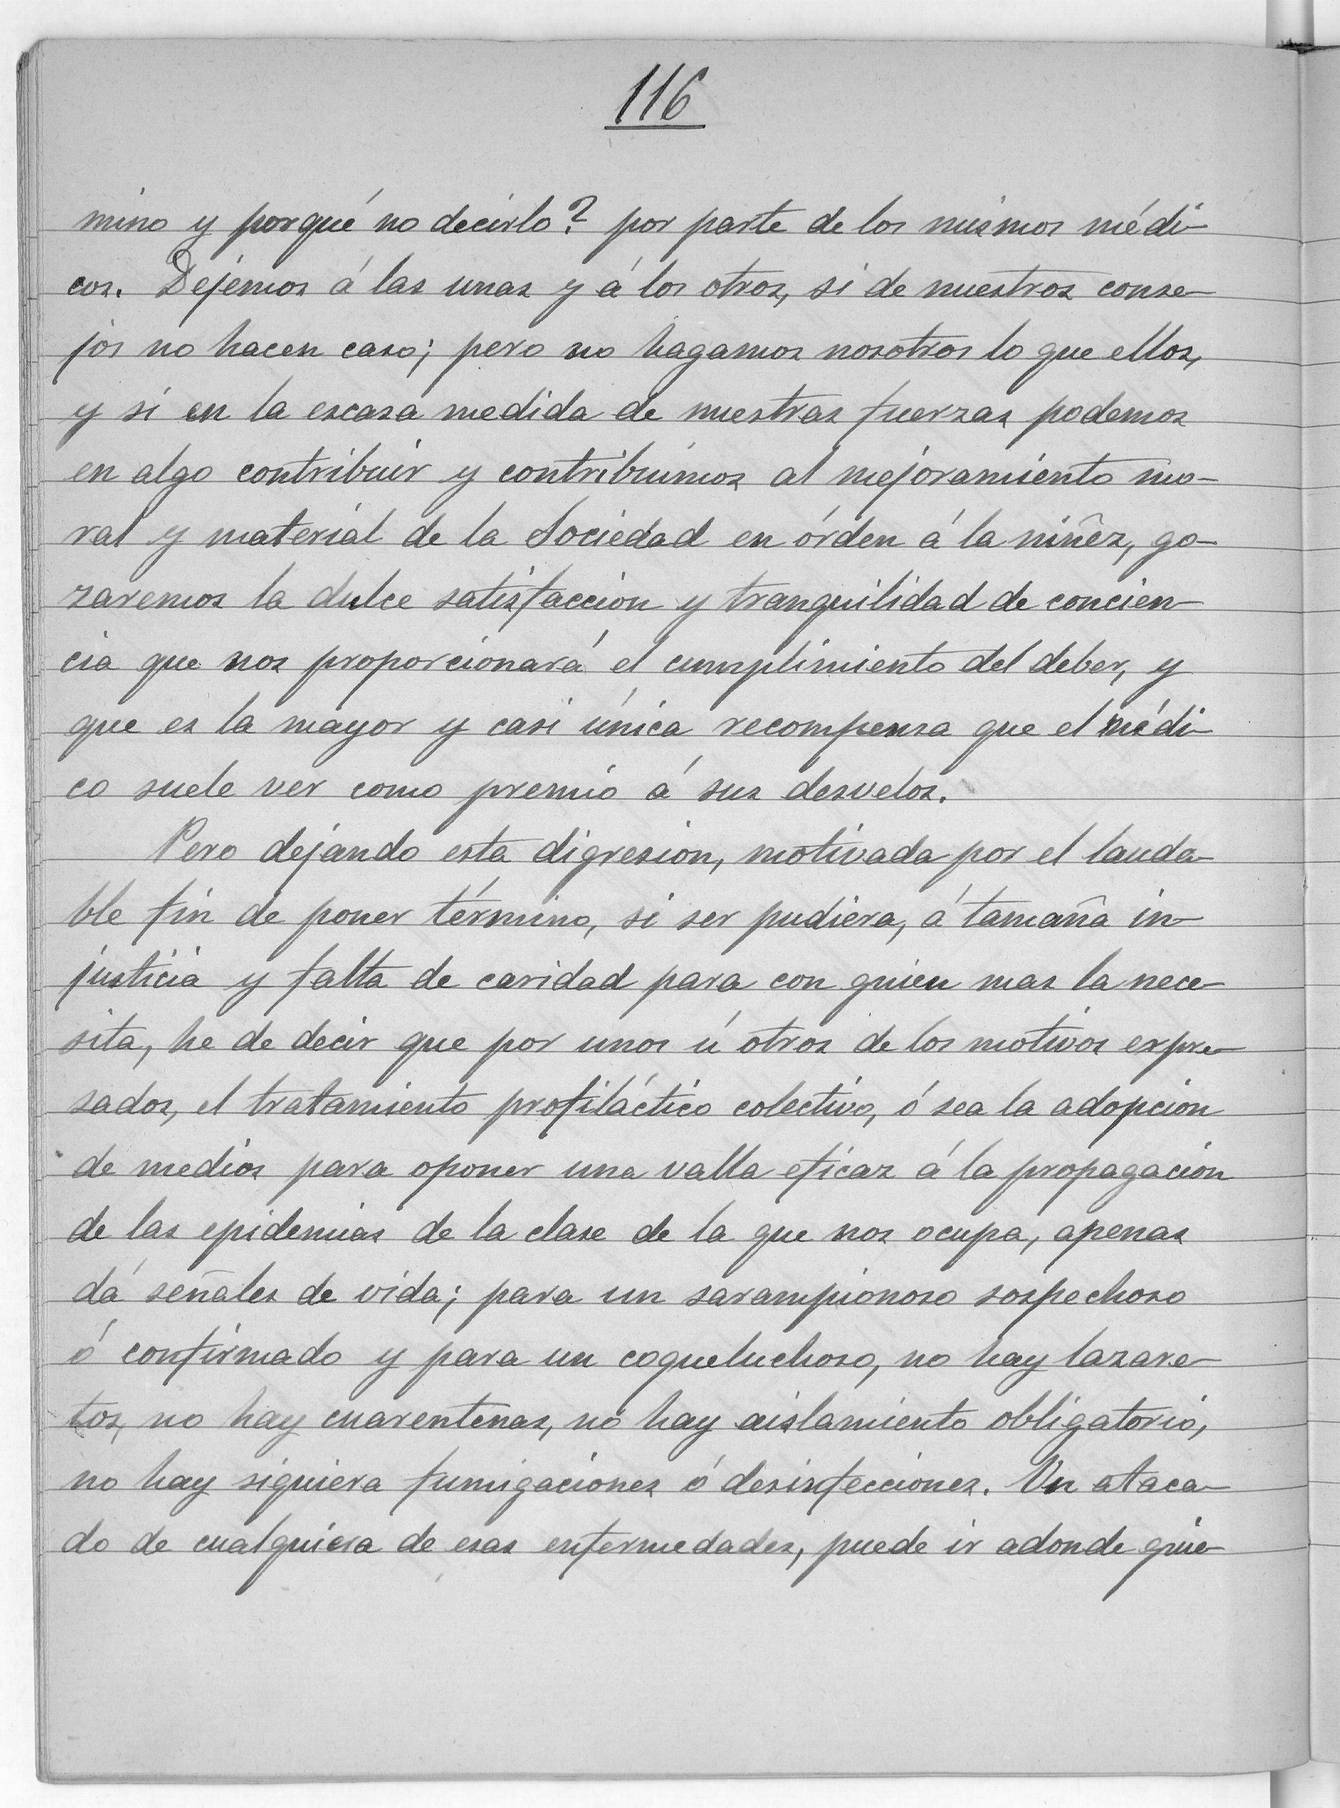 116
mino y porqué no decirlo? por parte de los mismos médi-
cos. Dejémos á las unas y á los otros, si de nuestros conse-
jos no hacen caso; pero no hagamos nosotros lo que ellos,
y si en la escasa medida de nuestras fuerzas podemos
en algo contribuir y contribuimos al mejoramiento mo-
ral y material de la Sociedad en órden á la niñez, go-
zaremos la dulce satisfaccion y tranquilidad de concien-
cia que nos proporcionará el cumplimiento del deber, y
que es la mayor y casi única recompensa que el médi-
co suele ver como premio á sus desvelos.
Pero dejando esta digresion, motivada por el lauda-
ble fin de poner término, si ser pudiera, á tamaña in-
justicia y falta de caridad para con quien mas la nece-
sita, he de decir que por unos ú otros de los motivos expre-
sados, el tratamiento profiláctico colectivo, ó sea la adopcion
de medios para oponer una valla eficaz á la propagacion
de las epidemias de la clase de la que nos ocupa, apenas
dá señales de vida; para un sarampionoso sospechoso
ó confirmado y para un coqueluchoso, no hay lazare-
tos, no hay cuarentenas, no hay aislamiento obligatorio,
no hay siquiera fumigaciones ó desinfecciones. Un ataca-
do de cualquiera de esas enfermedades, puede ir adonde quie-